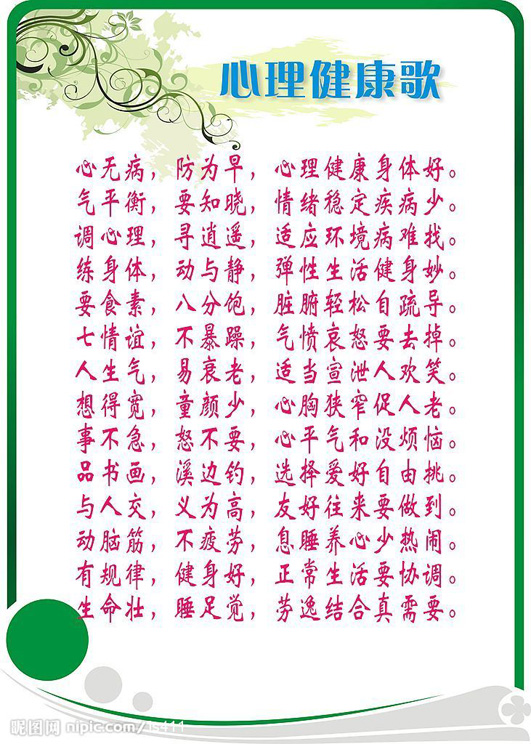 心理健康歌
心无病，防为早，心理健康身体好。
气平衡，要知晓，情绪稳定疾病少。
调心理，寻逍遥，适应环境病难找。
练身体，动与静，弹性生活健身妙。
要食素，八分饱，脏腑轻松自疏导。
七情谊，不暴躁，气愤哀怒要去掉。
人生气，易衰老，适当宣泄人欢笑。
想得宽，童颜少，心胸狭窄促人老。
事不急，怒不要，心平气和没烦恼。
品书画，溪边钓，选择爱好自由挑。
与人交，义为高，友好往来要做到。
动脑筋，不疲劳，息睡养心少热闹。
有规律，健身好，正常生活要协调。
生命壮，睡足觉，劳逸结合真需要。
昵图网 nipic.com/